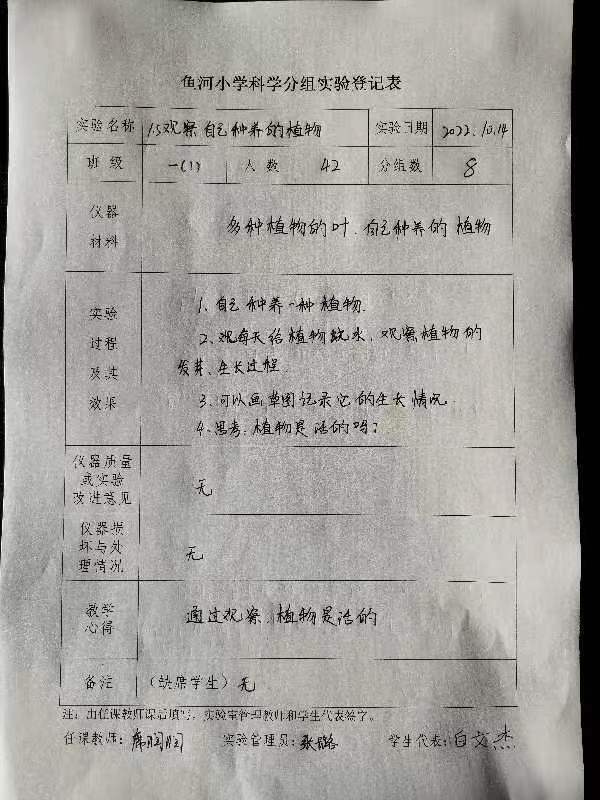 鱼河小学科学分组实验登记表
实验名称 15观察自己种养的植物 实验日期 2022.10.14
班级 一(1) 人数 42 分组数 8
仪器
材料
多种植物的叶、自己种养的植物
实验
过程
及其
效果
1、自己种养一种植物.
2、观每天给植物浇水,观察植物的
发芽、生长过程.
3、可以画草图记录它的生长情况.
4、思考:植物是活的吗?
仪器质量
或实验
改进意见
无
仪器损
坏与处
理情况
无
教学
心得
通过观察,植物是活的
备注 (缺席学生)无
注:由任课教师课后填写,实验室管理教师和学生代表签字。
任课教师: 实验管理员:张璐 学生代表:白文杰